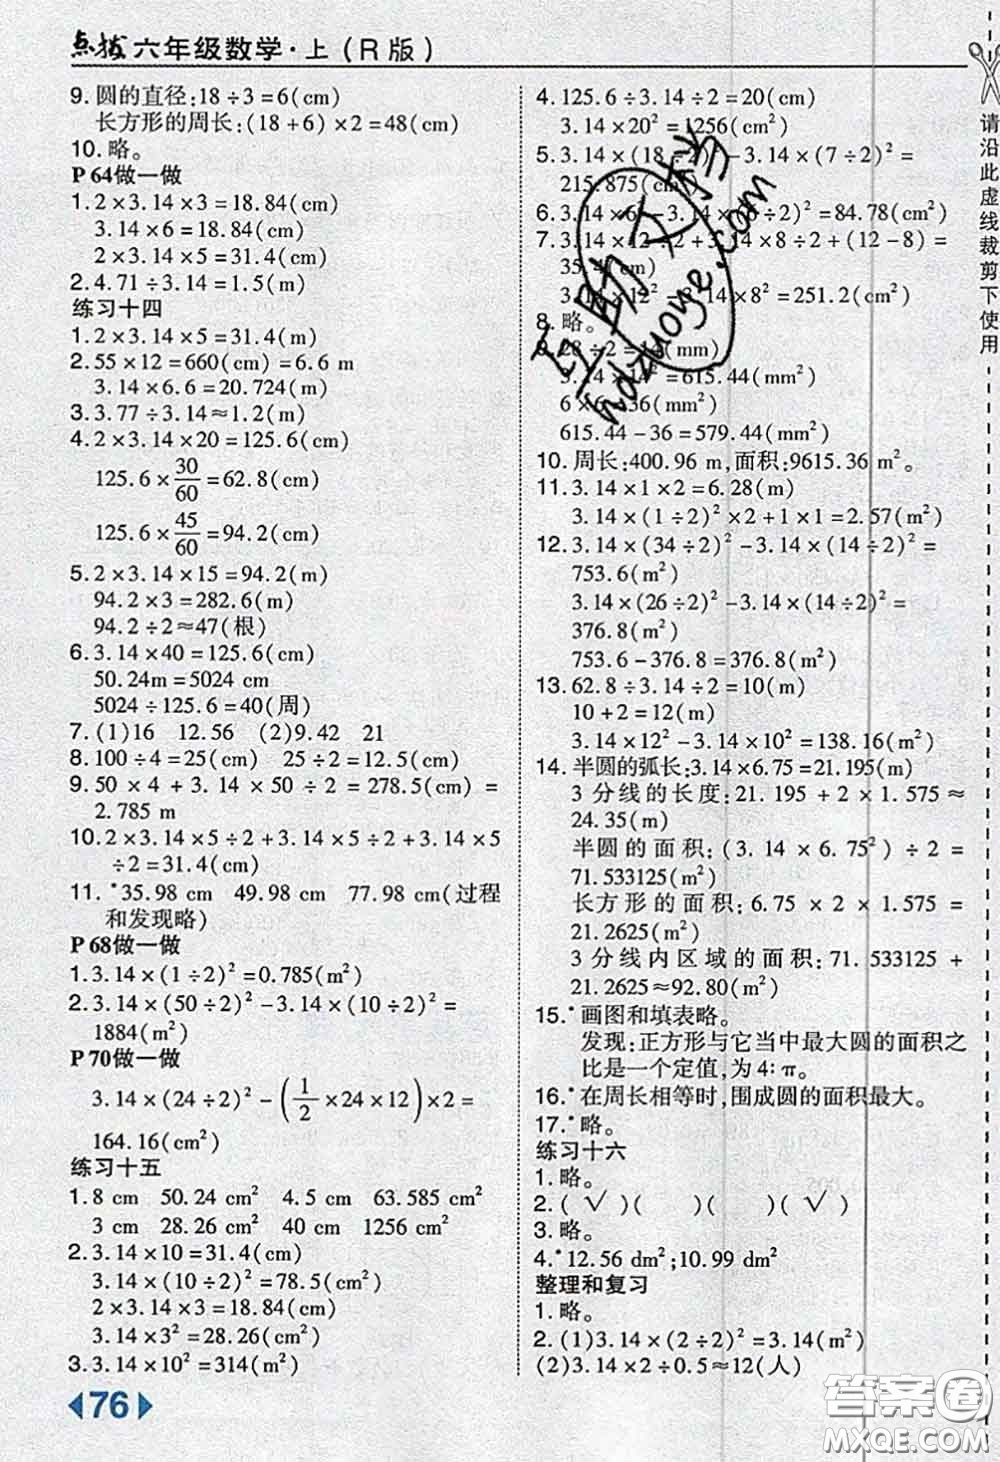 点拨 六年级数学·上(R版)
9. 圆的直径:18÷3=6(cm)
长方形的周长:(18+6)×2=48(cm)
10. 略。
P 64做一做
1. 2×3.14×3=18.84(cm)
3.14×6=18.84(cm)
2×3.14×5=31.4(cm)
2. 4.71÷3.14=1.5(m)
练习十四
1. 2×3.14×5=31.4(m)
2. 55×12=660(cm)=6.6 m
3.14×6.6=20.724(m)
3. 3.77÷3.14≈1.2(m)
4. 2×3.14×20=125.6(cm)
125.6×30/60=62.8(cm)
125.6×45/60=94.2(cm)
5. 2×3.14×15=94.2(m)
94.2×3=282.6(m)
94.2÷2≈47(根)
6. 3.14×40=125.6(cm)
50.24m=5024 cm
5024÷125.6=40(周)
7. (1)16 12.56 (2)9.42 21
8. 100÷4=25(cm) 25÷2=12.5(cm)
9. 50×4+3.14×50÷2=278.5(cm)=
2.785 m
10. 2×3.14×5÷2+3.14×5÷2+3.14×5
÷2=31.4(cm)
11.*35.98 cm 49.98 cm 77.98 cm(过程
和发现略)
P 68做一做
1. 3.14×(1÷2)²=0.785(m²)
2. 3.14×(50÷2)²-3.14×(10÷2)²=
1884(m²)
P 70做一做
3.14×(24÷2)²-(1/2×24×12)×2=
164.16(cm²)
练习十五
1. 8 cm 50.24 cm² 4.5 cm 63.585 cm²
3 cm 28.26 cm² 40 cm 1256 cm²
2. 3.14×10=31.4(cm)
3.14×(10÷2)²=78.5(cm²)
2×3.14×3=18.84(cm)
3.14×3²=28.26(cm²)
3. 3.14×10²=314(m²)
76
4. 125.6÷3.14÷2=20(cm)
3.14×20²=1256(cm²)
5. 3.14×(18÷2)²-3.14×(7÷2)²=
215.875(cm²)
6. 3.14×6²-3.14× ÷2)²=84.78(cm²)
7. 3.14×12÷2+3.14×8÷2+(12-8)=
35.4(cm)
3.14×12²- 3.14×8²=251.2(cm²)
8. 略。
9. 28÷2=14(mm)
3.14×14²=615.44(mm²)
6×6=36(mm²)
615.44-36=579.44(mm²)
10. 周长:400.96 m,面积:9615.36 m²。
11. 3.14×1×2=6.28(m)
3.14×(1÷2)²×2+1×1=2.57(m²)
12. 3.14×(34÷2)²-3.14×(14÷2)²=
753.6(m²)
3.14×(26÷2)²-3.14×(14÷2)²=
376.8(m²)
753.6-376.8=376.8(m²)
13. 62.8÷3.14÷2=10(m)
10+2=12(m)
3.14×12²-3.14×10²=138.16(m²)
14. 半圆的弧长:3.14×6.75=21.195(m)
3分线的长度:21.195+2×1.575≈
24.35(m)
半圆的面积:(3.14×6.75²)÷2=
71.533125(m²)
长方形的面积:6.75×2×1.575=
21.2625(m²)
3分线内区域的面积:71.533125+
21.2625≈92.80(m²)
15.*画图和填表略。
发现:正方形与它当中最大圆的面积之
比是一个定值,为4∶π。
16.*在周长相等时,围成圆的面积最大。
17.*略。
练习十六
1. 略。
2. (√)( )( )(√)( )
3. 略。
4.*12.56 dm²;10.99 dm²
整理和复习
1. 略。
2. (1)3.14×(2÷2)²=3.14(m²)
(2)3.14×2÷0.5≈12(人)
请沿此虚线裁剪下使用
hdzuoye.com
答案圈
MXQE.COM